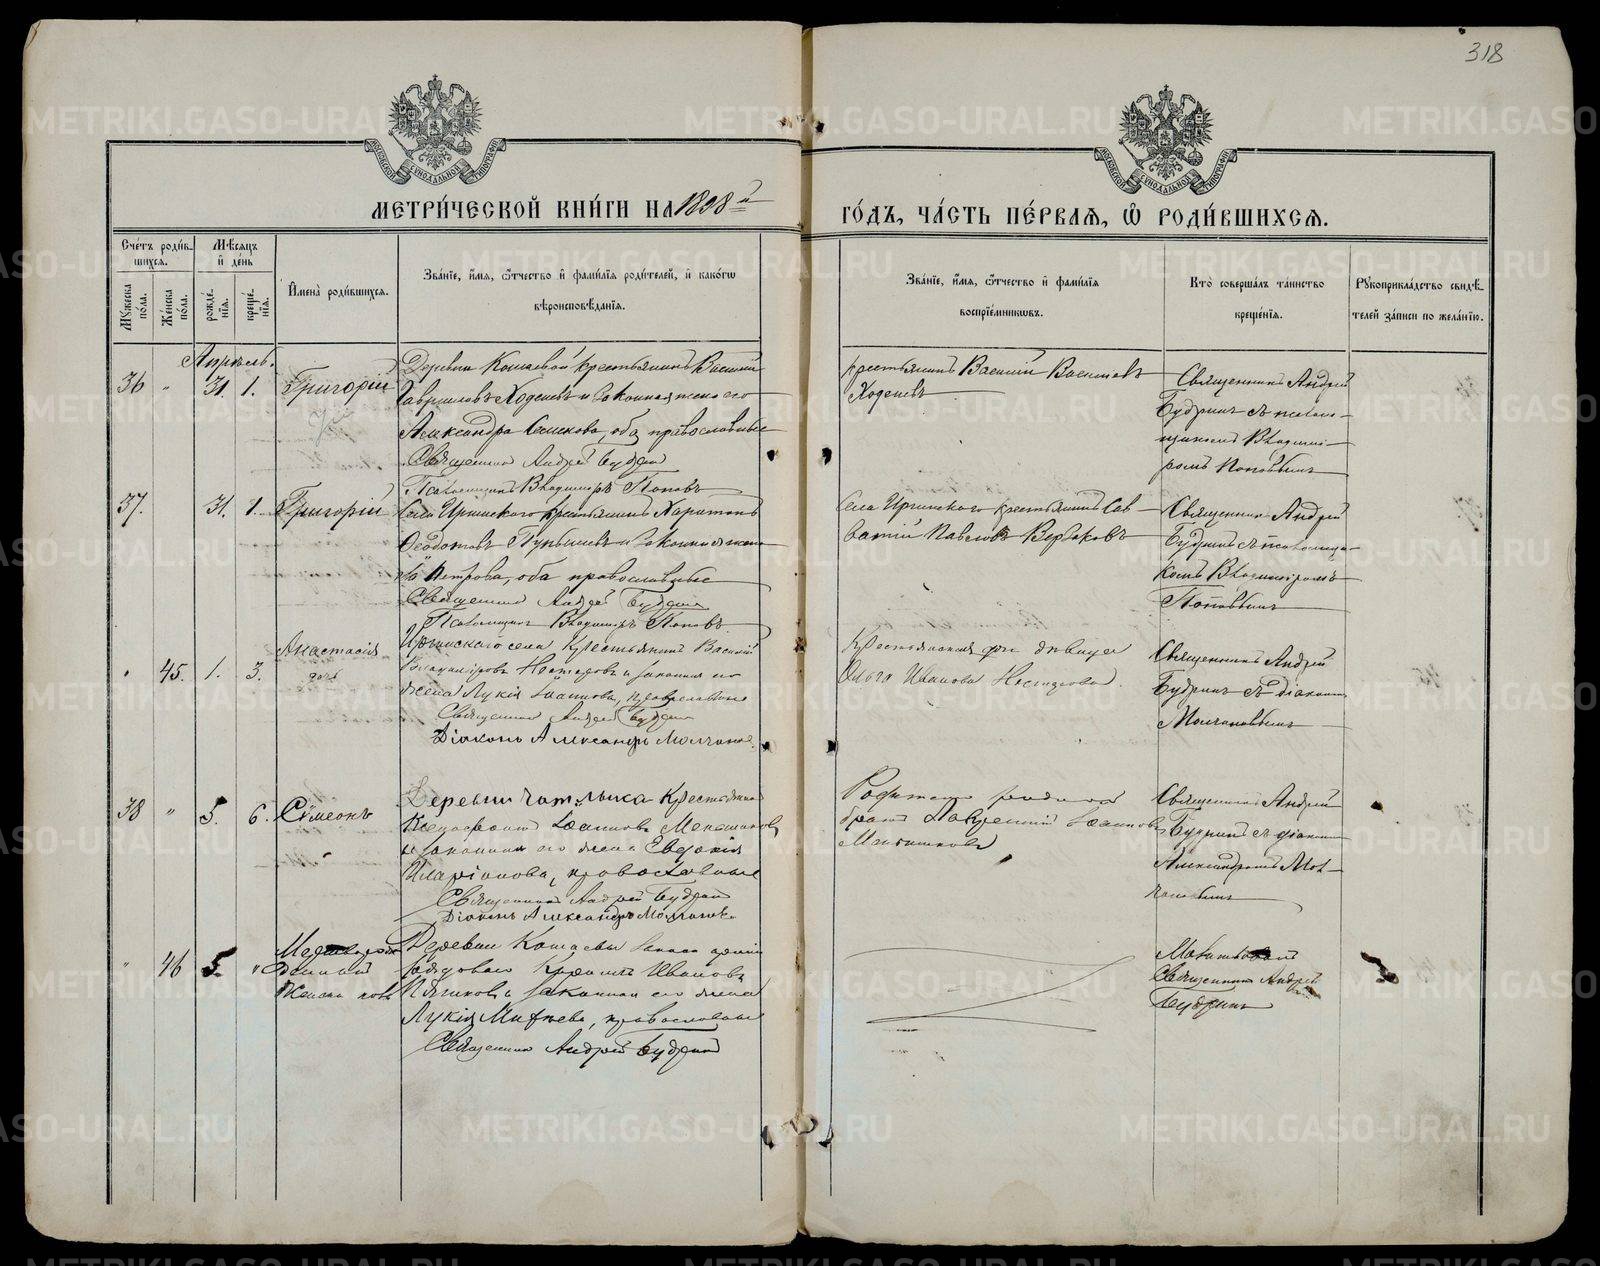 318
МЕТРИ́ЧЕСКОЙ КНИ́ГИ НА 1898й
ГО́ДЪ, ЧА́СТЬ ПЕ́РВАЯ, Ѡ РОДИ́ВШИХСЯ.
Сче́тъ роди́вшихся.
Мѣ́сяцъ и де́нь
Мꙋжеска по́ла.
Же́нска по́ла.
рожде́нїя.
креще́нїя.
И҆мена̀ роди́вшихся.
Зва́нїе, и҆́мя, ѻ҆́тчество и҆ фами́лїя роди́телей, и҆ како́гѡ
вѣроисповѣ́данїя.
Зва́нїе, и҆́мя, ѻ҆́тчество и҆ фами́лїя
воспрїе́мниковъ.
Кто̀ соверша́лъ та́инство
креще́нїя.
Рꙋкоприкла́дство свидѣ́-
телей за́писи по жела́нїю.
Апрѣль.
36 " 31. 1. Григорій
Деревни Кошаевой крестьянинъ Василій
Гавриловъ Ходеневъ и законная жена его
Александра Семенова, оба православные
Священникъ Андрей Будринъ
Псаломщикъ Владимиръ Поповъ
крестьянинъ Василій Васильевъ
Ходеневъ
Священникъ Андрей
Будринъ съ псалом-
щикомъ Владими-
ромъ Поповымъ
37. 31. 1. Григорій
Села Иргинского крестьянинъ Харитонъ
Ѳеодотовъ и законная жена
Петрова, оба православные
Священникъ Андрей Будринъ
Псаломщикъ Владимиръ Поповъ
Села Иргинского крестьянинъ Сав-
ватій Павловъ Вербаковъ
Священникъ Андрей
Будринъ съ псаломщи-
комъ Владимиромъ
Поповымъ
" 45. 1. 3. Анастасія
Иргинскаго села Крестьянинъ Василій
Владиміровъ Нестеровъ и законная его
жена Лукія Іоаннова, православные
Священникъ Андрей Будринъ
Діаконъ Александръ Молчановъ
Крестьянская дѣвица
Ольга Иванова Нестерова.
Священникъ Андрей
Будринъ съ діакономъ
Молчановымъ
38 " 5. 6. Сѵмеонъ
Деревни Чатлыка Крестьянинъ
Іоанновъ Меньшиковъ
и законная его жена Евдокія
Иларіонова, православные
Священникъ Андрей Будринъ
Діаконъ Александръ Молчановъ
родной
братъ Лаврентій Іоанновъ
Меньшиковъ
Священникъ Андрей
Будринъ съ діакономъ
Александромъ Мол-
чановымъ
" 46 5. "
Мертворож-
денный
Женска пола
Деревни Кошаевы запаса арміи
рядоваго Иванова
и законная его жена
Лукія православные
Священникъ Андрей Будринъ
Священникъ Андрей
Будринъ
METRIKI.GASO-URAL.RU